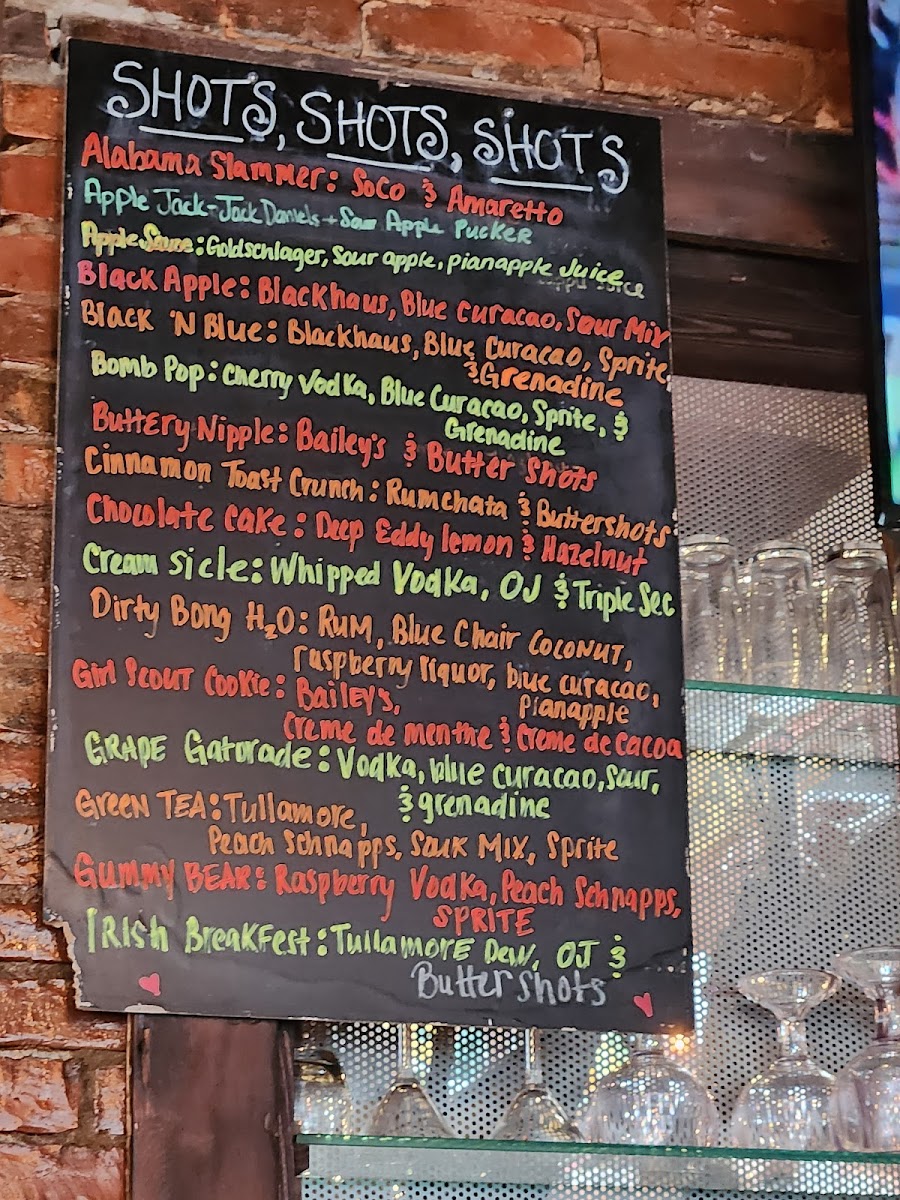 SHOTS, SHOTS, SHOTS
Alabama Slammer: SoCo & Amaretto
Apple Jack-Jack Daniels + Sour Apple Pucker
Apple Sauce: Goldschlager, Sour apple, pianapple Juice
Black Apple: Blackhaus, Blue curacao, Sour Mix
Black 'N Blue: Blackhaus, Blue Curacao, Sprite,
& Grenadine
Bomb Pop: Cherry Vodka, Blue Curacao, Sprite, &
Grenadine
ButtEry Nipple: Bailey's & Butter Shots
Cinnamon Toast Crunch: Rumchata & Buttershots
Chocolate Cake: Deep Eddy lemon & Hazelnut
Cream Sicle: Whipped Vodka, OJ & Triple Sec
Dirty Bong H₂O: Rum, Blue Chair Coconut,
raspberry liquor, blue curacao,
Pianapple
Girl Scout Cookie: Baileys,
Creme de menthe & Creme de Cacoa
GRAPE Gatorade: Vodka, blue curacao, sour,
& grenadine
Green TEA: Tullamore,
Peach Schnapps, Sour Mix, Sprite
Gummy BEAR: Raspberry Vodka, Peach Schnapps,
SPRITE
IRISh BreakFest: Tullamore Dew, OJ &
Butter shots